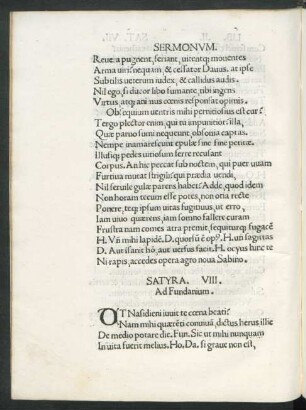 SERMONVM.
Reuera pugnent, feriant, uitentq; mouentes
Arma uiri: nequam, & cessator Dauus. at ipse
Subtilis ueterum iudex, & callidus audis.
Nil ego, si ducor libo fumante, tibi ingens
Virtus, atq; animus cœnis responsat opimis.
Obsequium uentris mihi perniciosius est. cur?
Tergo plector enim, qui tu inpunitior illa,
Quæ paruo sumi nequeunt, obsonia captas.
Nempe inamarescunt epulæ sine fine petitæ.
Illusiq; pedes uitiosum ferre recusant
Corpus. An hic peccat sub noctem, qui puer uuam
Furtiua mutat strigili: qui prædia uendit,
Nil seruile gulæ parens habet? Adde, quod idem
Non horam tecum esse potes, non otia recte
Ponere, teq; ipsum uitas fugitiuus, ut erro,
Iam uino quærens, iam somno fallere curam
Frustra nam comes atra premit, sequiturq; fugacē
H. Vñ mihi lapidē. D. quorsū ē op? H. uñ sagittas
D. Aut isanit hō, aut uersus facit. H. ocyus hinc te
Ni rapis, accedes opera agro nona Sabino.
SATYRA. VIII.
Ad Fundanium.
VT Nasidieni iuuit te cœna beati?
Nam mihi quærēti conuiuā, dictus herus illic
De medio potare die. Fun. Sic ut mihi nunquam
In uita fuerit melius. Ho. Da, si graue non est,